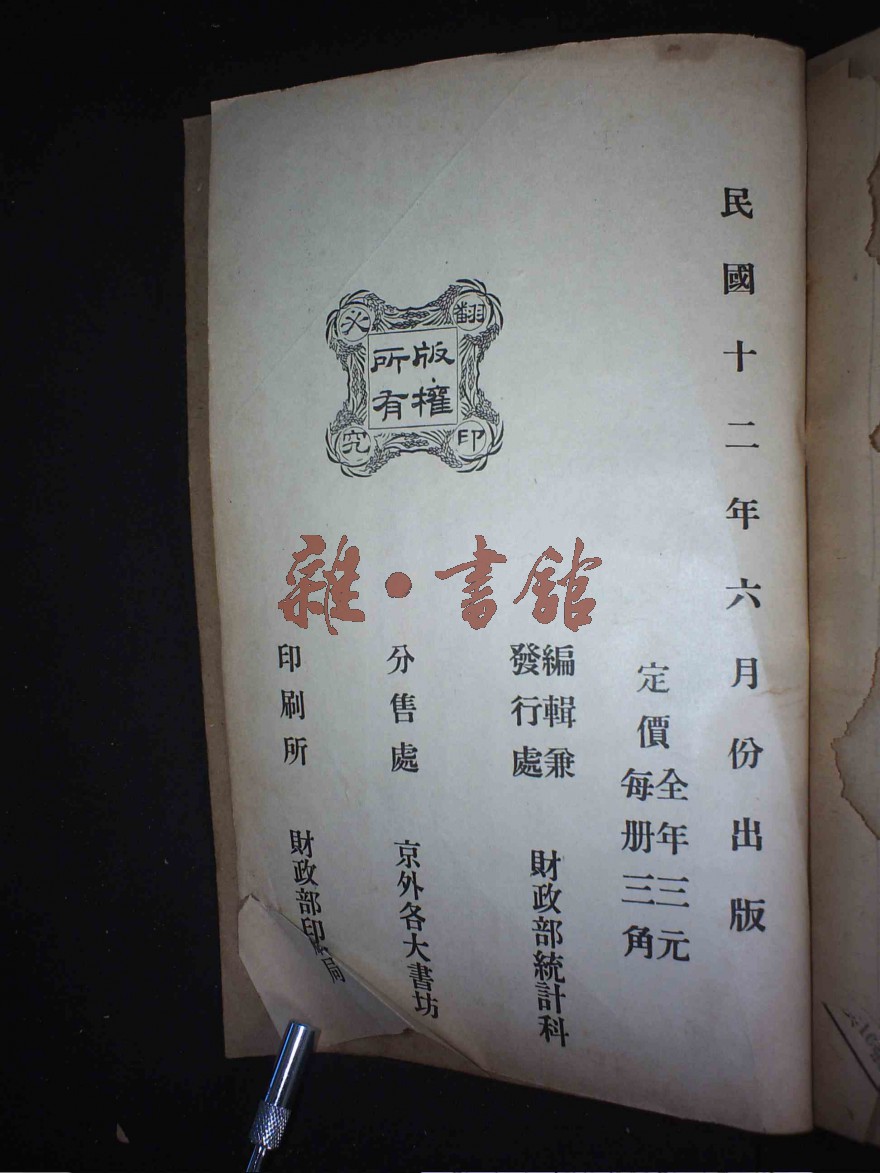 民國十二年六月份出版
定價
全年三元
每册三角
編輯兼
發行處
財政部統計科
分售處
京外各大書坊
印刷所
財政部印刷局
版權
所有
翻印
必究
雜·書館